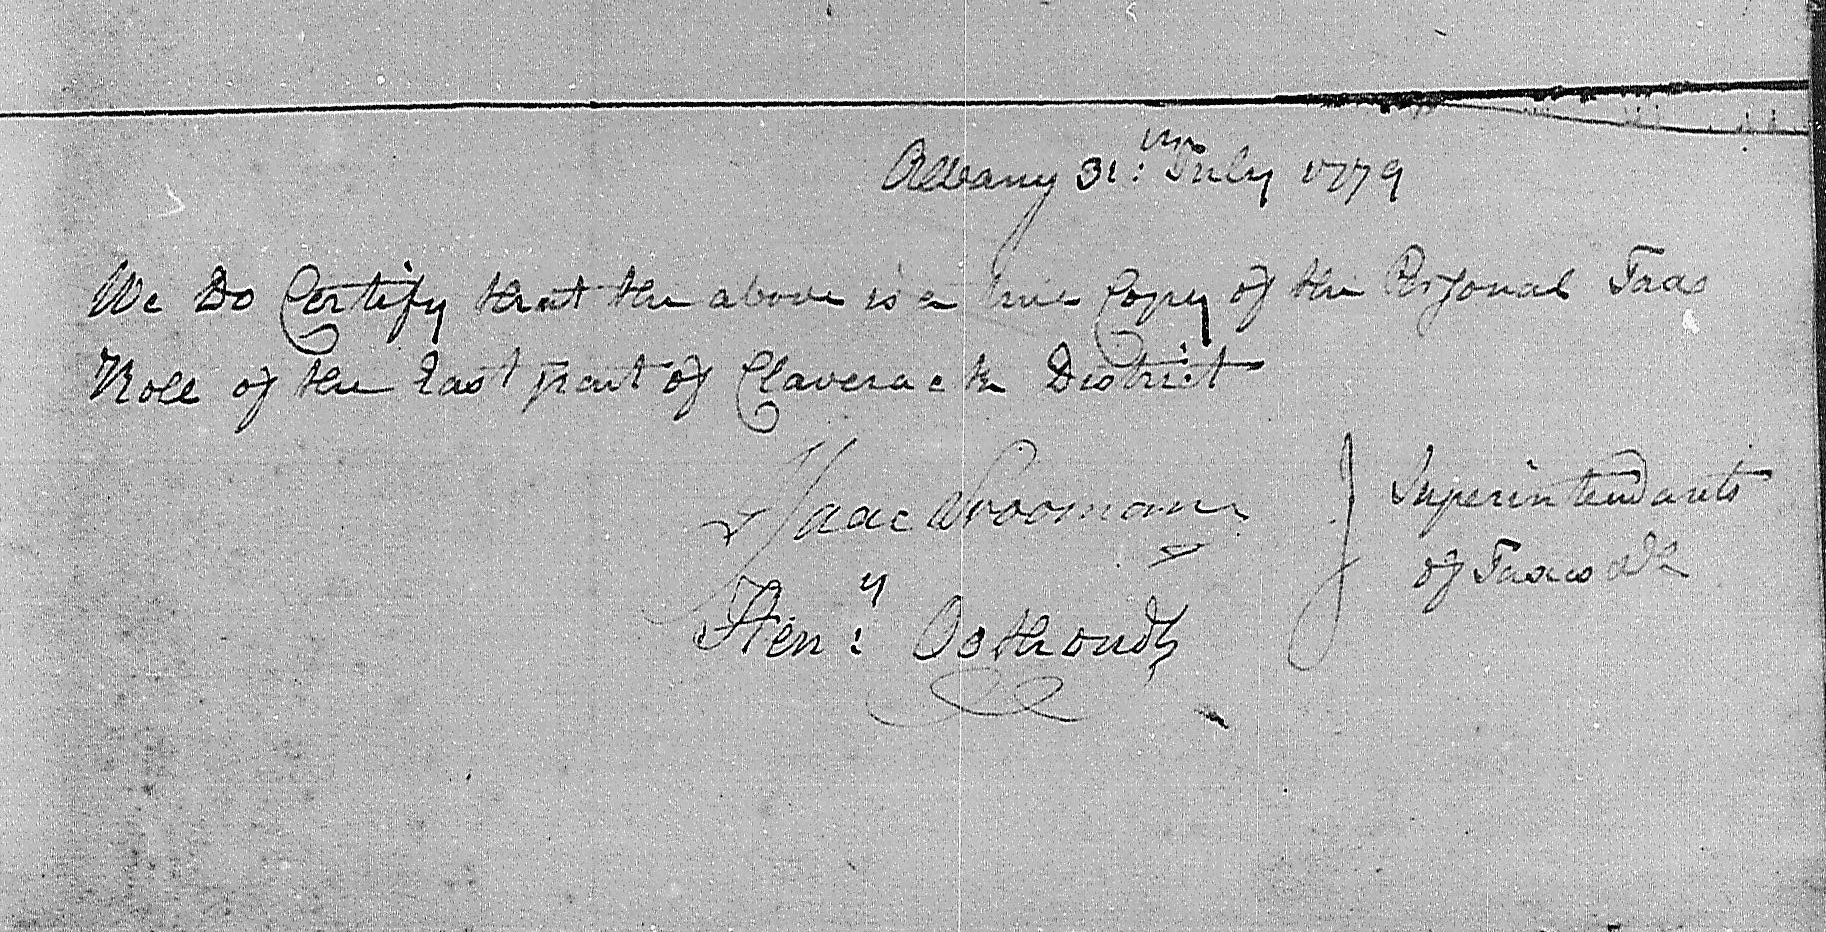 Albany 31: July 1779
We Do Certify that the above is a true Copy of the Personal Tax
Roll of the East part of Claverack District
Isaac Vrooman
Superintendants
of Taxes &c
Hen:y Oothoudt